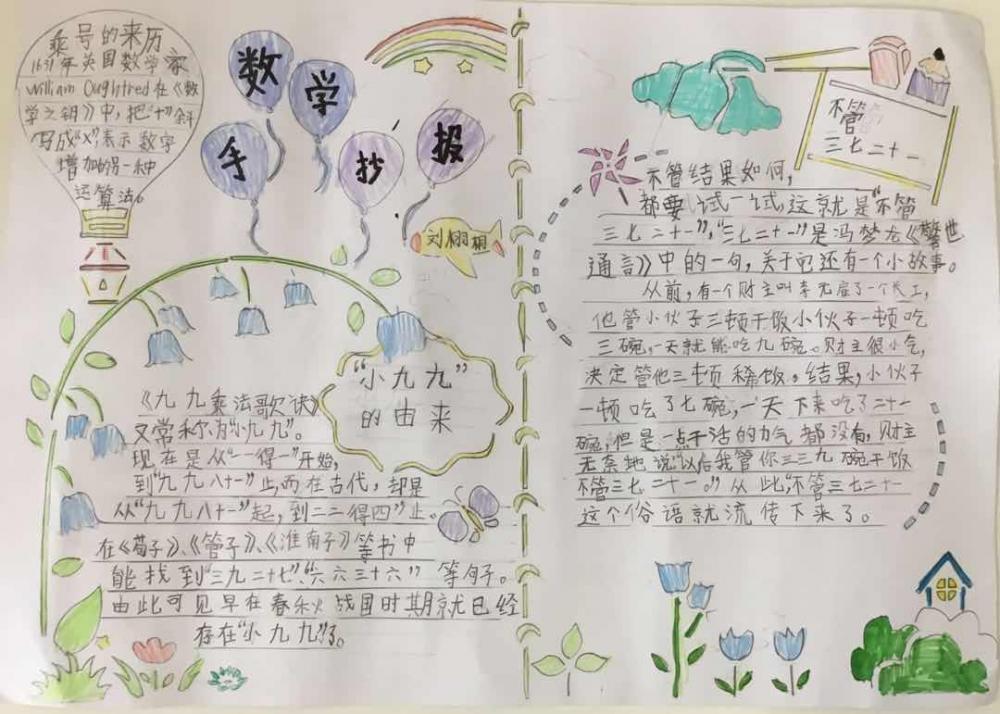 乘号的来历
1631年英国数学家
William Oughtred在《数
学之钥》中,把“十”斜
写成“×”,表示数字
增加的另一种
运算法。
数学
手抄报
刘栩桐
“小九九”
的由来
《九九乘法歌诀》
又常称为“小九九”。
现在是从“一一得一”开始,
到“九九八十一”止,而在古代,却是
从“九九八十一”起,到二二得四”止。
在《荀子》、《管子》、《淮南子》等书中
能找到“三九二十七”、“六六三十六” 等句子。
由此可见早在春秋战国时期就已经
存在“小九九”了。
不管
三七二十一
不管结果如何,
都要试一试,这就是“不管
三七二十一”,“三七二十一”是冯梦龙《警世
通言》中的一句,关于它还有一个小故事。
从前,有一个财主叫李无雇了一个长工,
他管小伙子三顿干饭小伙子一顿吃
三碗,一天就能吃九碗。财主很小气,
决定管他三顿稀饭。结果,小伙子
一顿吃了七碗,一天下来吃了二十一
碗,但是一点干活的力气都没有,财主
无奈地说“以后我管你三三九碗干饭
不管三七二十一。”从此,“不管三七二十一
这个俗语就流传下来了。